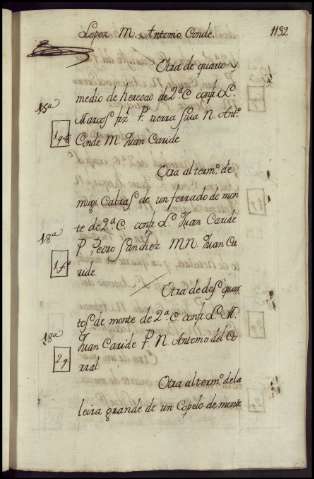 Lopez M. Antonio Conde.
1132
Otra de quarto y
15ª medio de heredad de 2ª C. confr. L.
P. tierra suia N. Antº
1 q m Conde M. Juan Caride
Otra al termº de
de un ferrado de mon
18ª te de 2ª C. confr. L. Juan Caride
1 f P. Pedro Sanchez M N. Juan Ca
ride
Otra de dos quar
tos de monte de 2ª C. confr. L. M.
18ª Juan Caride P N Antonio del Co
2 q rral
Otra al termº de la
leira grande de un Copelo de monte